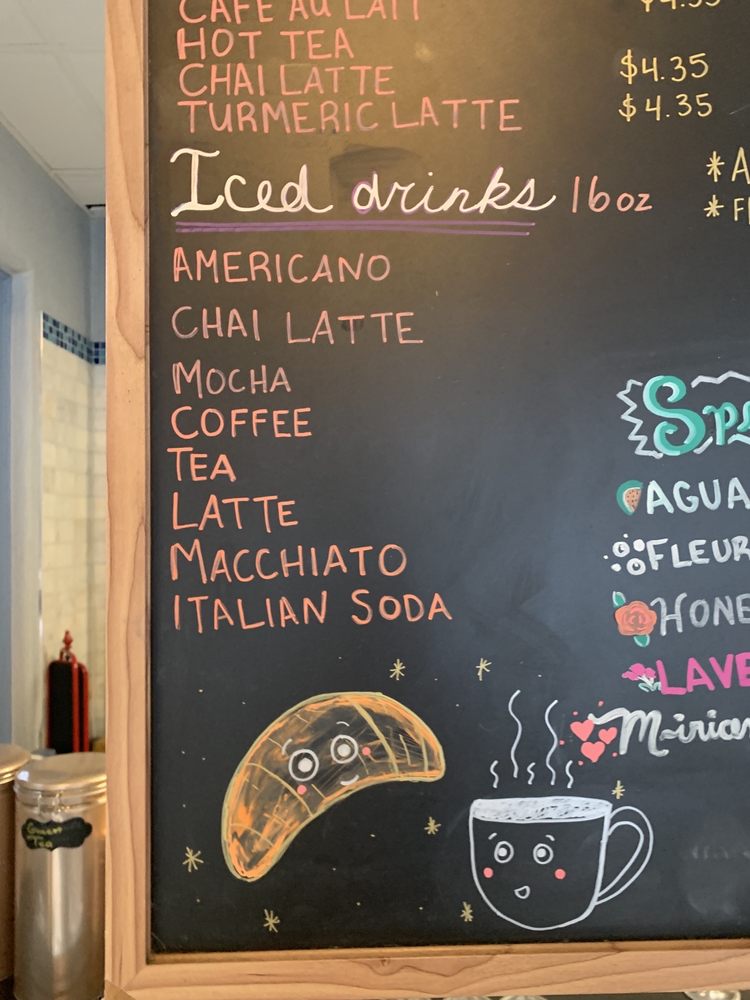 CAFE AU LAIT $4.35
HOT TEA
CHAI LATTE $4.35
TURMERIC LATTE $4.35
Iced drinks 16oz
AMERICANO
CHAI LATTE
MOCHA
COFFEE
TEA
LATTE
MACCHIATO
ITALIAN SODA
AGUA
FLEUR
Green
Tea